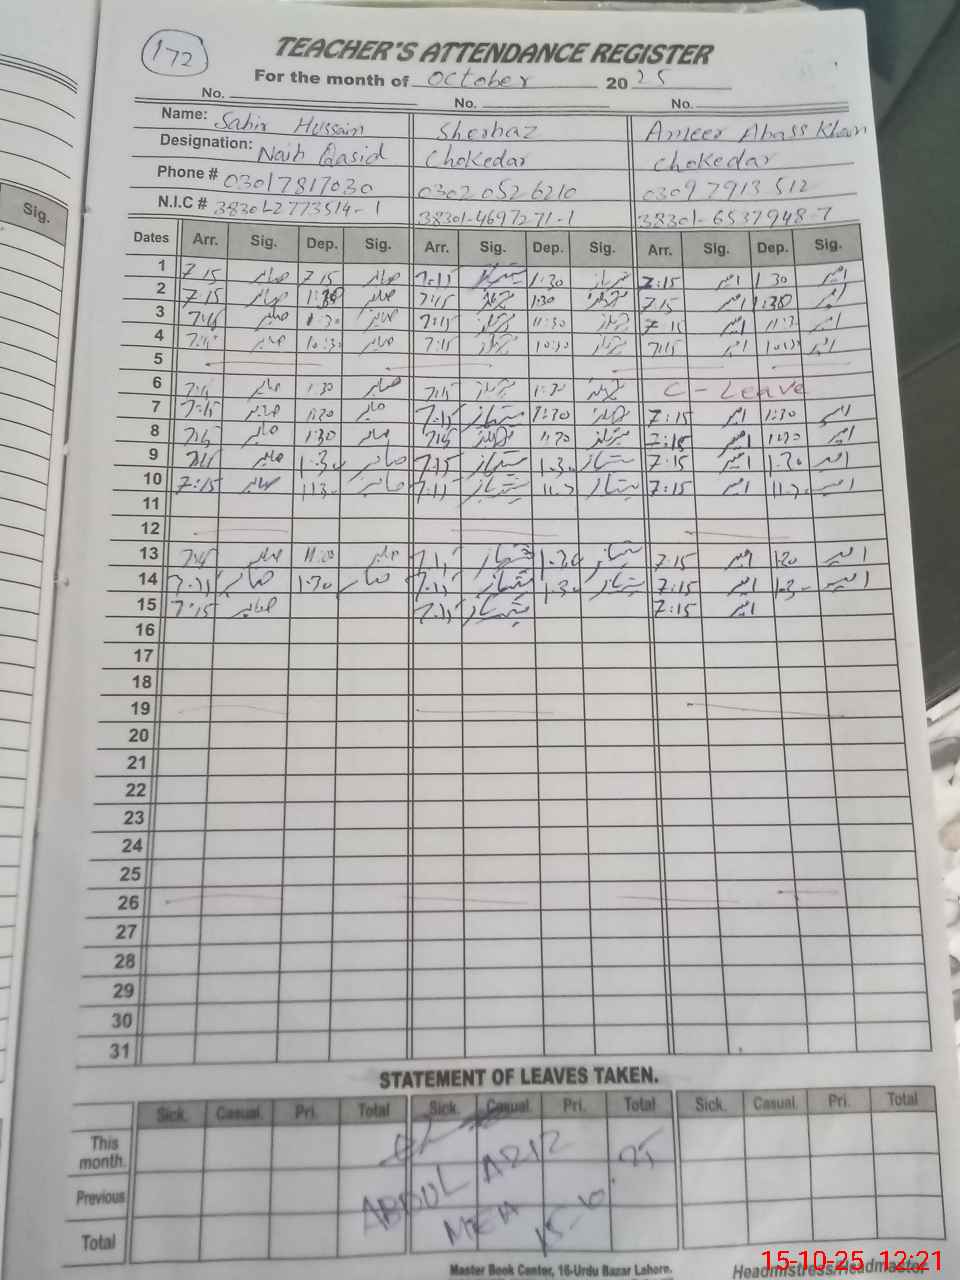 172
TEACHER'S ATTENDANCE REGISTER
For the month of October 2025
No. No. No.
Name: Sabir Hussain Shershaz Ameer Abass Khan
Designation: Naib Qasid Chokedar Chokedar
Phone # 03017817030 03020526210 03097913512
N.I.C # 38301-2773514-1 38301-4697271-1 38301-6537948-7
Dates Arr. Sig. Dep. Sig. Arr. Sig. Dep. Sig. Arr. Sig. Dep. Sig.
Sig.
1 7:15 صابر 7:15 صابر 7:15 1:30 7:15 امیر 1:30 امیر
2 7:15 صابر 1:30 صابر 7:15 1:30 7:15 امیر 1:30 امیر
3 7:15 صابر 11:30 صابر 7:15 11:30 7:15 امیر 11:30 امیر
4 7:15 صابر 10:30 صابر 7:15 10:30 7:15 امیر 10:30 امیر
5
6 7:15 صابر 1:30 صابر 7:15 1:30 C - Leave
7 7:15 صابر 1:30 صابر 7:15 1:30 7:15 امیر 1:30 امیر
8 7:15 صابر 1:30 صابر 7:15 1:30 7:15 امیر 1:30 امیر
9 7:15 صابر 1:30 صابر 7:15 1:30 7:15 امیر 1:30 امیر
10 7:15 صابر 11:30 صابر 7:15 11:30 7:15 امیر 11:30 امیر
11
12
13 7:15 صابر 1:30 صابر 7:15 1:30 7:15 امیر 1:30 امیر
14 7:15 صابر 1:30 صابر 7:15 1:30 7:15 امیر 1:30 امیر
15 7:15 صابر 7:15 7:15 امیر
16
17
18
19
20
21
22
23
24
25
26
27
28
29
30
31
STATEMENT OF LEAVES TAKEN.
Sick. Casual. Pri. Total Sick. Casual. Pri. Total Sick. Casual. Pri. Total
This month.
Previous
Total
ABDUL AZIZ
MEA
15-10-25
Master Book Center, 16-Urdu Bazar Lahore.
Headmistress/Headmaster
15-10-25 12:21